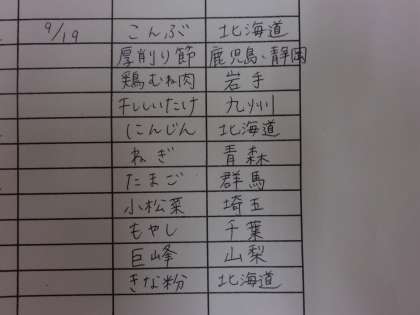 9/19 こんぶ 北海道
厚削り節 鹿児島・静岡
鶏むね肉 岩手
干ししいたけ 九州
にんじん 北海道
ねぎ 青森
たまご 群馬
小松菜 埼玉
もやし 千葉
巨峰 山梨
きな粉 北海道